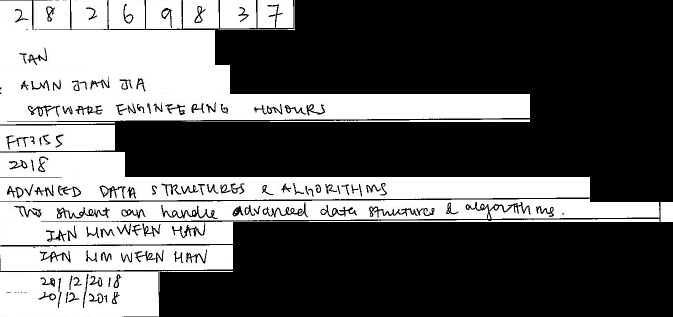 2 8 2 6 9 8 3 7
TAN
ALVIN JIAN JIA
SOFTWARE ENGINEERING HONOURS
FIT3155
2018
ADVANCED DATA STRUCTURES & ALGORITHMS
This student can handle advanced data structures & algorithms.
IAN LIM WERN HAN
IAN LIM WERN HAN
20/12/2018
20/12/2018